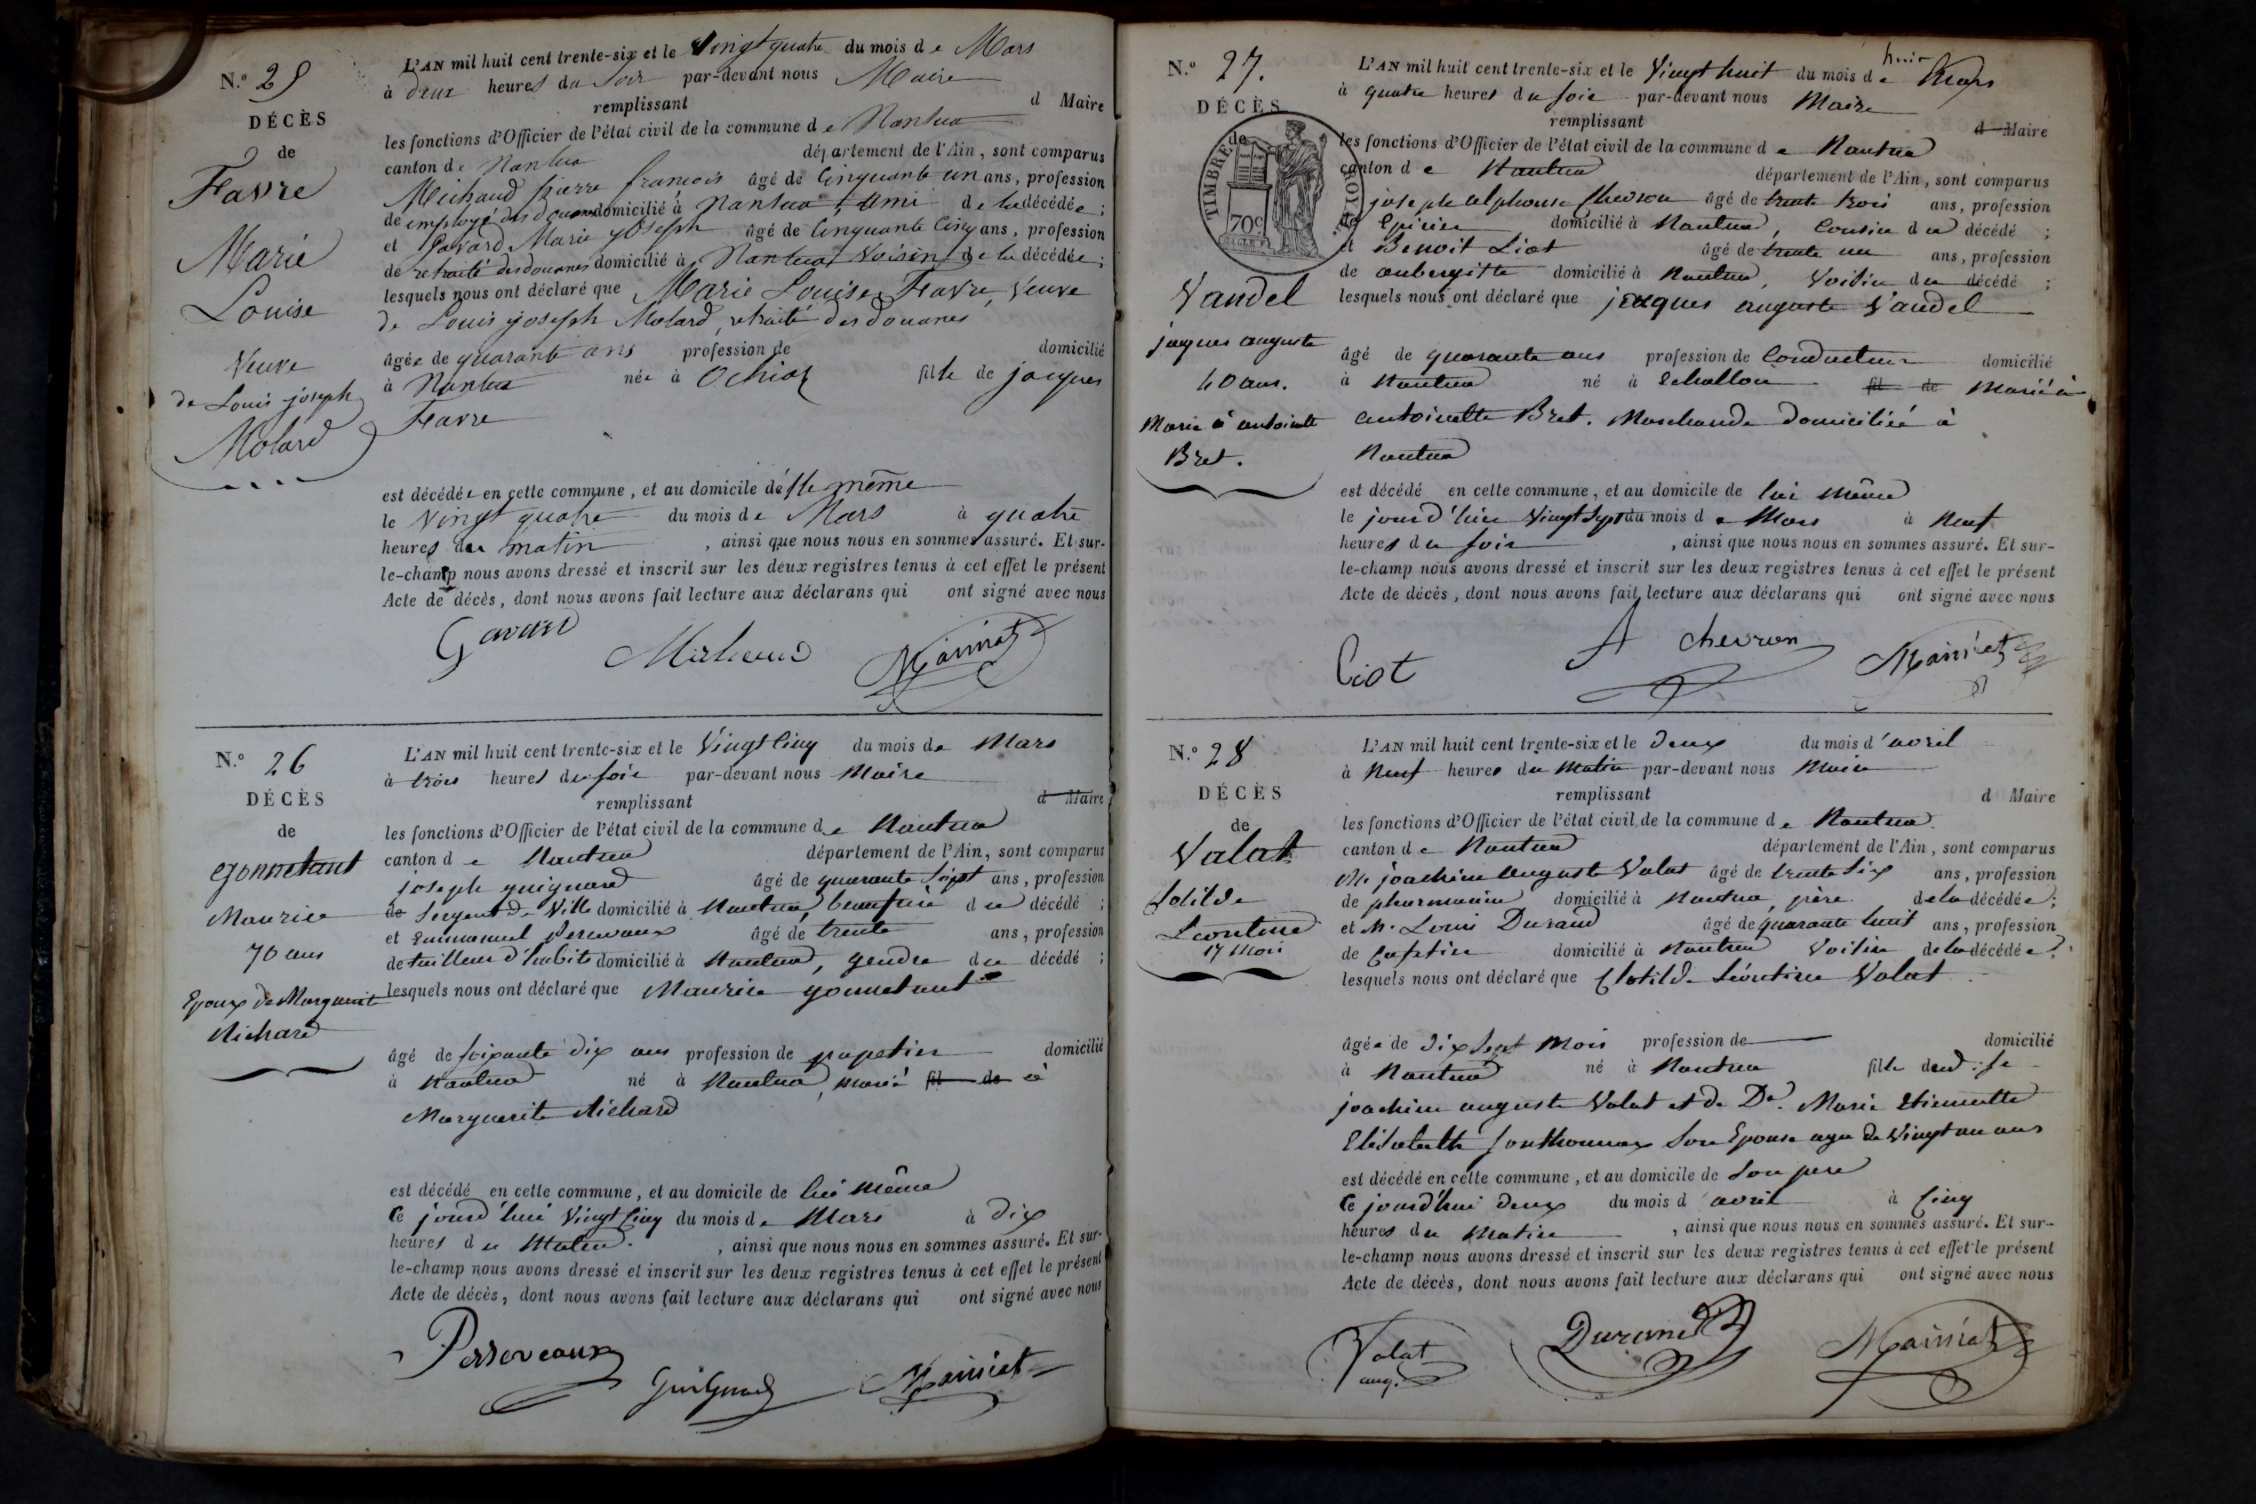 N.o 25
DÉCÈS
de
Favre
Marie
Louise
Veuve
de Louis joseph
Molard
L'AN mil huit cent trente-six et le Vingt quatre du mois de Mars
à deux heures du soir par-devant nous Maire
remplissant d Maire
les fonctions d'Officier de l'état civil de la commune de Nantua
canton de Nantua département de l'Ain, sont comparus
Michaud pierre francois âgé de Cinquante un ans, profession
de employé des douanes domicilié à Nantua, ami de la décédée;
et Gavard Marie joseph âgé de Cinquante Cinq ans, profession
de retraité des douanes domicilié à Nantua Voisin de la décédée;
lesquels nous ont déclaré que Marie Louise Favre, Veuve
de Louis joseph Molard, retraité des douanes
âgée de quarante ans profession de domicilié
à Nantua née à Ochiaz fille de jacques
Favre
est décédée en cette commune, et au domicile d'elle même
le Vingt quatre du mois de Mars à quatre
heures du matin, ainsi que nous nous en sommes assuré. Et sur-
le-champ nous avons dressé et inscrit sur les deux registres tenus à cet effet le présent
Acte de décès, dont nous avons fait lecture aux déclarans qui ont signé avec nous
Gavard Michaud Mainiat
N.o 26
DÉCÈS
de
gonnetant
Maurice
70 ans
Epoux de Marguerite
Richard
L'AN mil huit cent trente-six et le Vingt Cinq du mois de Mars
à trois heures du soir par-devant nous Maire
remplissant d Maire
les fonctions d'Officier de l'état civil de la commune de Nantua
canton de Nantua département de l'Ain, sont comparus
joseph guignard âgé de quarante Sept ans, profession
de Sergent de Ville domicilié à Nantua, beaufrère du décédé;
et Emmanuel perceveaux âgé de trente ans, profession
de tailleur d'habits domicilié à Nantua, gendre du décédé;
lesquels nous ont déclaré que Maurice gonnetant
âgé de soixante dix ans profession de papetier domicilié
à Nantua né à Nantua, marié fil de à
Marguerite Richard
est décédé en cette commune, et au domicile de lui même
Ce jourd'hui Vingt Cinq du mois de Mars à dix
heures du Matin, ainsi que nous nous en sommes assuré. Et sur-
le-champ nous avons dressé et inscrit sur les deux registres tenus à cet effet le présent
Acte de décès, dont nous avons fait lecture aux déclarans qui ont signé avec nous
Perseveaux Guignard Mainiat
N.o 27.
DÉCÈS
de
TIMBRE ROYAL
70c
Vandel
jaques auguste
40 ans.
Marié à antoinette
Bret.
L'AN mil huit cent trente-six et le Vingt huit du mois de Mars
à quatre heures du soir par-devant nous Maire
remplissant d Maire
les fonctions d'Officier de l'état civil de la commune de Nantua
canton de Nantua département de l'Ain, sont comparus
joseph alphonse Chevron âgé de trente trois ans, profession
de Epicier domicilié à Nantua, Cousin du décédé;
et Benoit Liot âgé de trente un ans, profession
de aubergiste domicilié à Nantua, Voisin du décédé;
lesquels nous ont déclaré que jaques auguste Vandel
âgé de quarante ans profession de Conducteur domicilié
à Nantua né à Echallon fil de Marié à
antoinette Bret. Marchande domiciliée à
Nantua
est décédé en cette commune, et au domicile de lui même
le jourd'hier Vingt Sept du mois de Mars à Neuf
heures du soir, ainsi que nous nous en sommes assuré. Et sur-
le-champ nous avons dressé et inscrit sur les deux registres tenus à cet effet le présent
Acte de décès, dont nous avons fait lecture aux déclarans qui ont signé avec nous
Liot A chevron Mainiat
N.o 28
DÉCÈS
de
Valat
Clotilde
Léontine
17 Mois
L'AN mil huit cent trente-six et le deux du mois d'avril
à Neuf heures du Matin par-devant nous Maire
remplissant d Maire
les fonctions d'Officier de l'état civil de la commune de Nantua
canton de Nantua département de l'Ain, sont comparus
M. joachim auguste Valat âgé de trente Six ans, profession
de pharmacien domicilié à Nantua, père de la décédée;
et M. Louis Durand âgé de quarante huit ans, profession
de Cafetier domicilié à Nantua Voisin de la décédée;
lesquels nous ont déclaré que Clotilde Léontine Valat
âgée de dix Sept Mois profession de domicilié
à Nantua né à Nantua fille dud. Sr
joachim auguste Valat et de De. Marie Etiennette
Elisabeth Jonthonnax Son Epouse agée de Vingt un ans
est décédé en cette commune, et au domicile de Son pere
Ce jourd'hui deux du mois d'avril à Cinq
heures du Matin, ainsi que nous nous en sommes assuré. Et sur-
le-champ nous avons dressé et inscrit sur les deux registres tenus à cet effet le présent
Acte de décès, dont nous avons fait lecture aux déclarans qui ont signé avec nous
Valat aug. Durand Mainiat